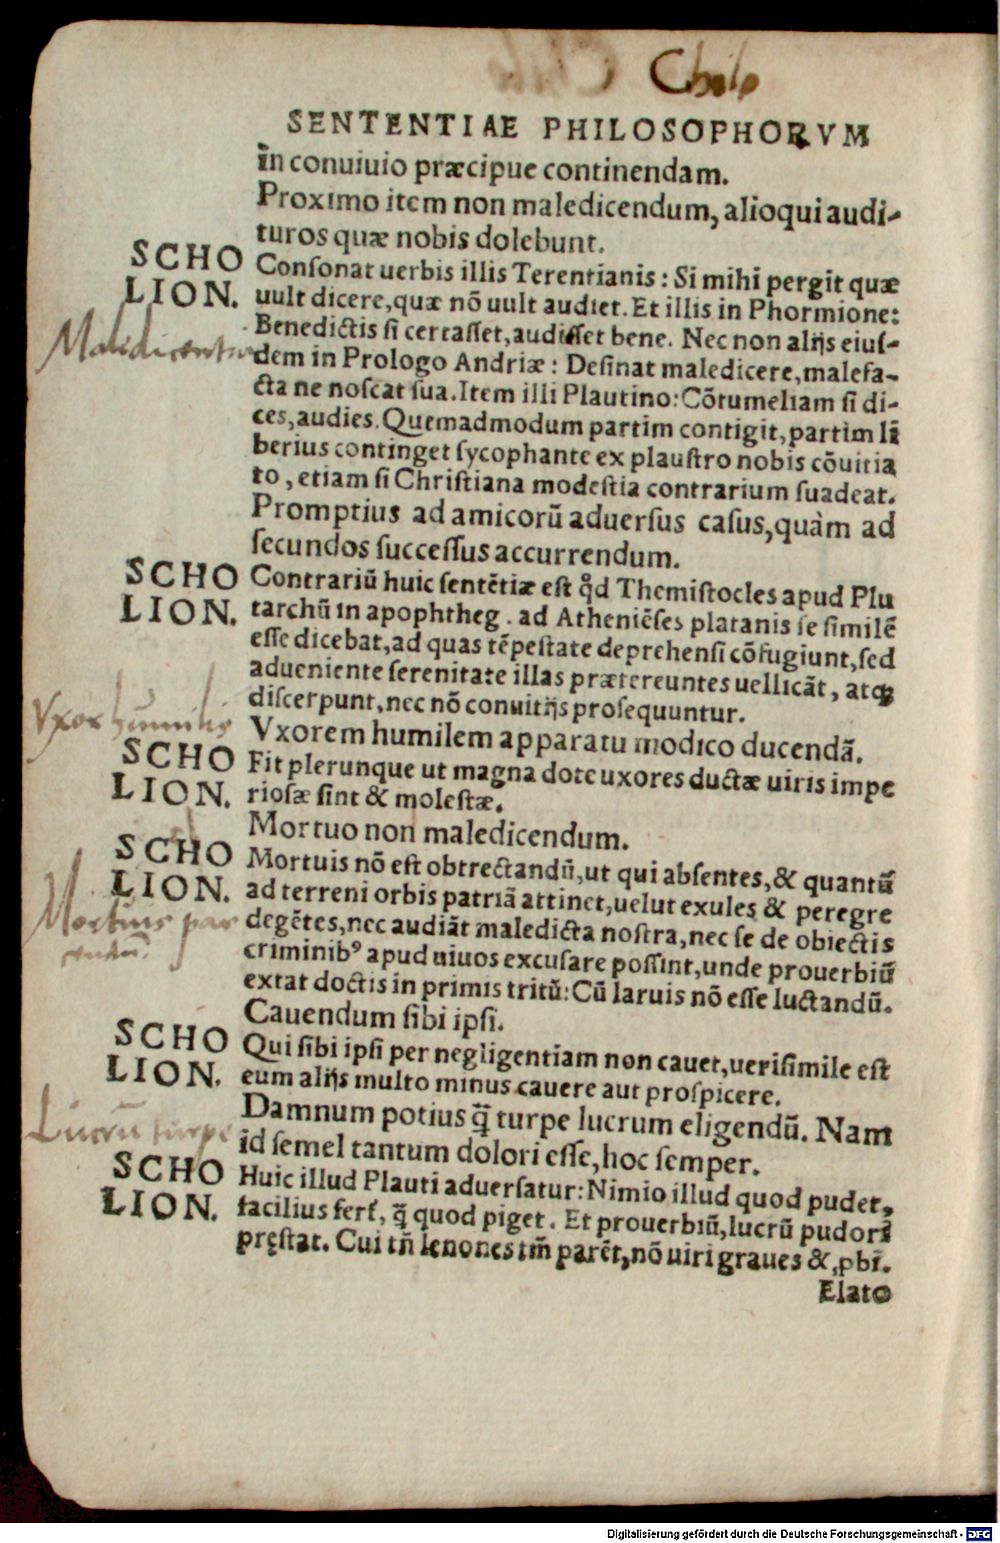 Chilo
SENTENTIAE PHILOSOPHORVM
in conuiuio præcipue continendam.
Proximo item non maledicendum, alioqui audi-
turos quæ nobis dolebunt.
SCHO
LION.
Conſonat uerbis illis Terentianis: Si mihi pergit quæ
uult dicere, quæ nõ uult audiet. Et illis in Phormione:
Maledicentia
Benedictis ſi certaſſet, audiſſet bene. Nec non alijs eiuſ-
dem in Prologo Andriæ: Deſinat maledicere, malefa-
cta ne noſcat ſua. Item illi Plautino: Cõtumeliam ſi di-
ces, audies. Quemadmodum partim contigit, partim li
berius continget ſycophante ex plauſtro nobis cõuitia
to, etiam ſi Chriſtiana modeſtia contrarium ſuadeat.
Promptius ad amicorũ aduerſus caſus, quàm ad
ſecundos ſucceſſus accurrendum.
SCHO
LION.
Contrariũ huic ſentẽtiæ eſt qd̃ Themiſtocles apud Plu
tarchũ in apophtheg. ad Atheniẽſes platanis ſe ſimilẽ
eſſe dicebat, ad quas tẽpeſtate deprehenſi cõfugiunt, ſed
adueniente ſerenitate illas prætereuntes uellicãt, atꝗ
diſcerpunt, nec nõ conuitijs proſequuntur.
Vxor humilis
Vxorem humilem apparatu modico ducendã.
SCHO
LION.
Fit plerunque ut magna dote uxores ductæ uiris impe
rioſæ ſint & moleſtæ.
Mortuo non maledicendum.
SCHO
LION.
Mortuis nõ eſt obtrectandũ, ut qui abſentes, & quantũ
ad terreni orbis patriã attinet, uelut exules & peregre
Mortuis par
cendũ.
degẽtes, nec audiãt maledicta noſtra, nec ſe de obiectis
criminibꝰ apud uiuos excuſare poſſint, unde prouerbiũ
extat doctis in primis tritũ: Cũ laruis nõ eſſe luctandũ.
Cauendum ſibi ipſi.
SCHO
LION.
Qui ſibi ipſi per negligentiam non cauet, ueriſimile eſt
eum alijs multo minus cauere aut proſpicere.
Lucrũ turpe
Damnum potius q̃ turpe lucrum eligendũ. Nam
id ſemel tantum dolori eſſe, hoc ſemper.
SCHO
LION.
Huic illud Plauti aduerſatur: Nimio illud quod pudet,
facilius fert̃, q̃ quod piget. Et prouerbiũ, lucrũ pudori
pręſtat. Cui tñ lenones tm̃ parẽt, nõ uiri graues & ꝓbi.
Elato
Digitalisierung gefördert durch die Deutsche Forschungsgemeinschaft - DFG